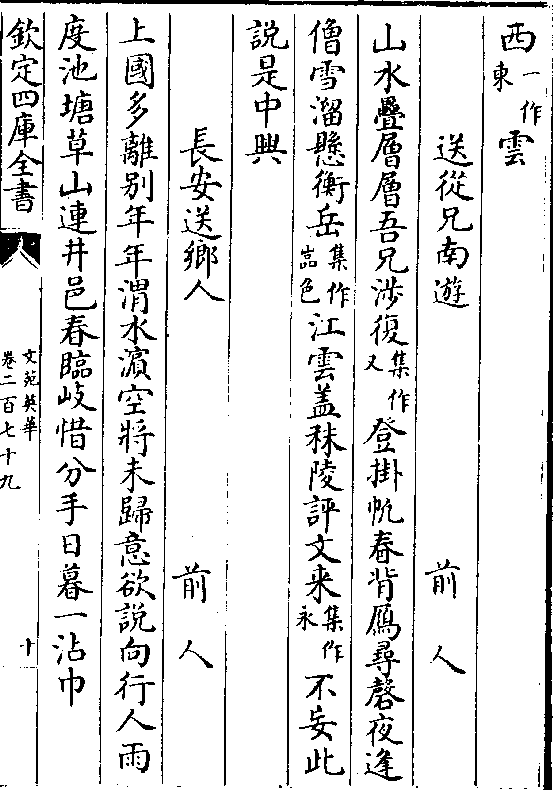 西一作東雲
送從兄南遊　前人
山水疊層層吾兄涉復集作又登掛帆春背鴈尋磬夜逢
僧雪溜懸衡岳集作嵓色江雲盖秣陵評文来集作永不妄此
說是中興
長安送鄉人　前人
上國多離别年年渭水濵空將未歸意欲說向行人雨
度池塘草山連井邑春臨岐惜分手日暮一沾巾
欽定四庫全書
文苑英華
卷二百七十九
十